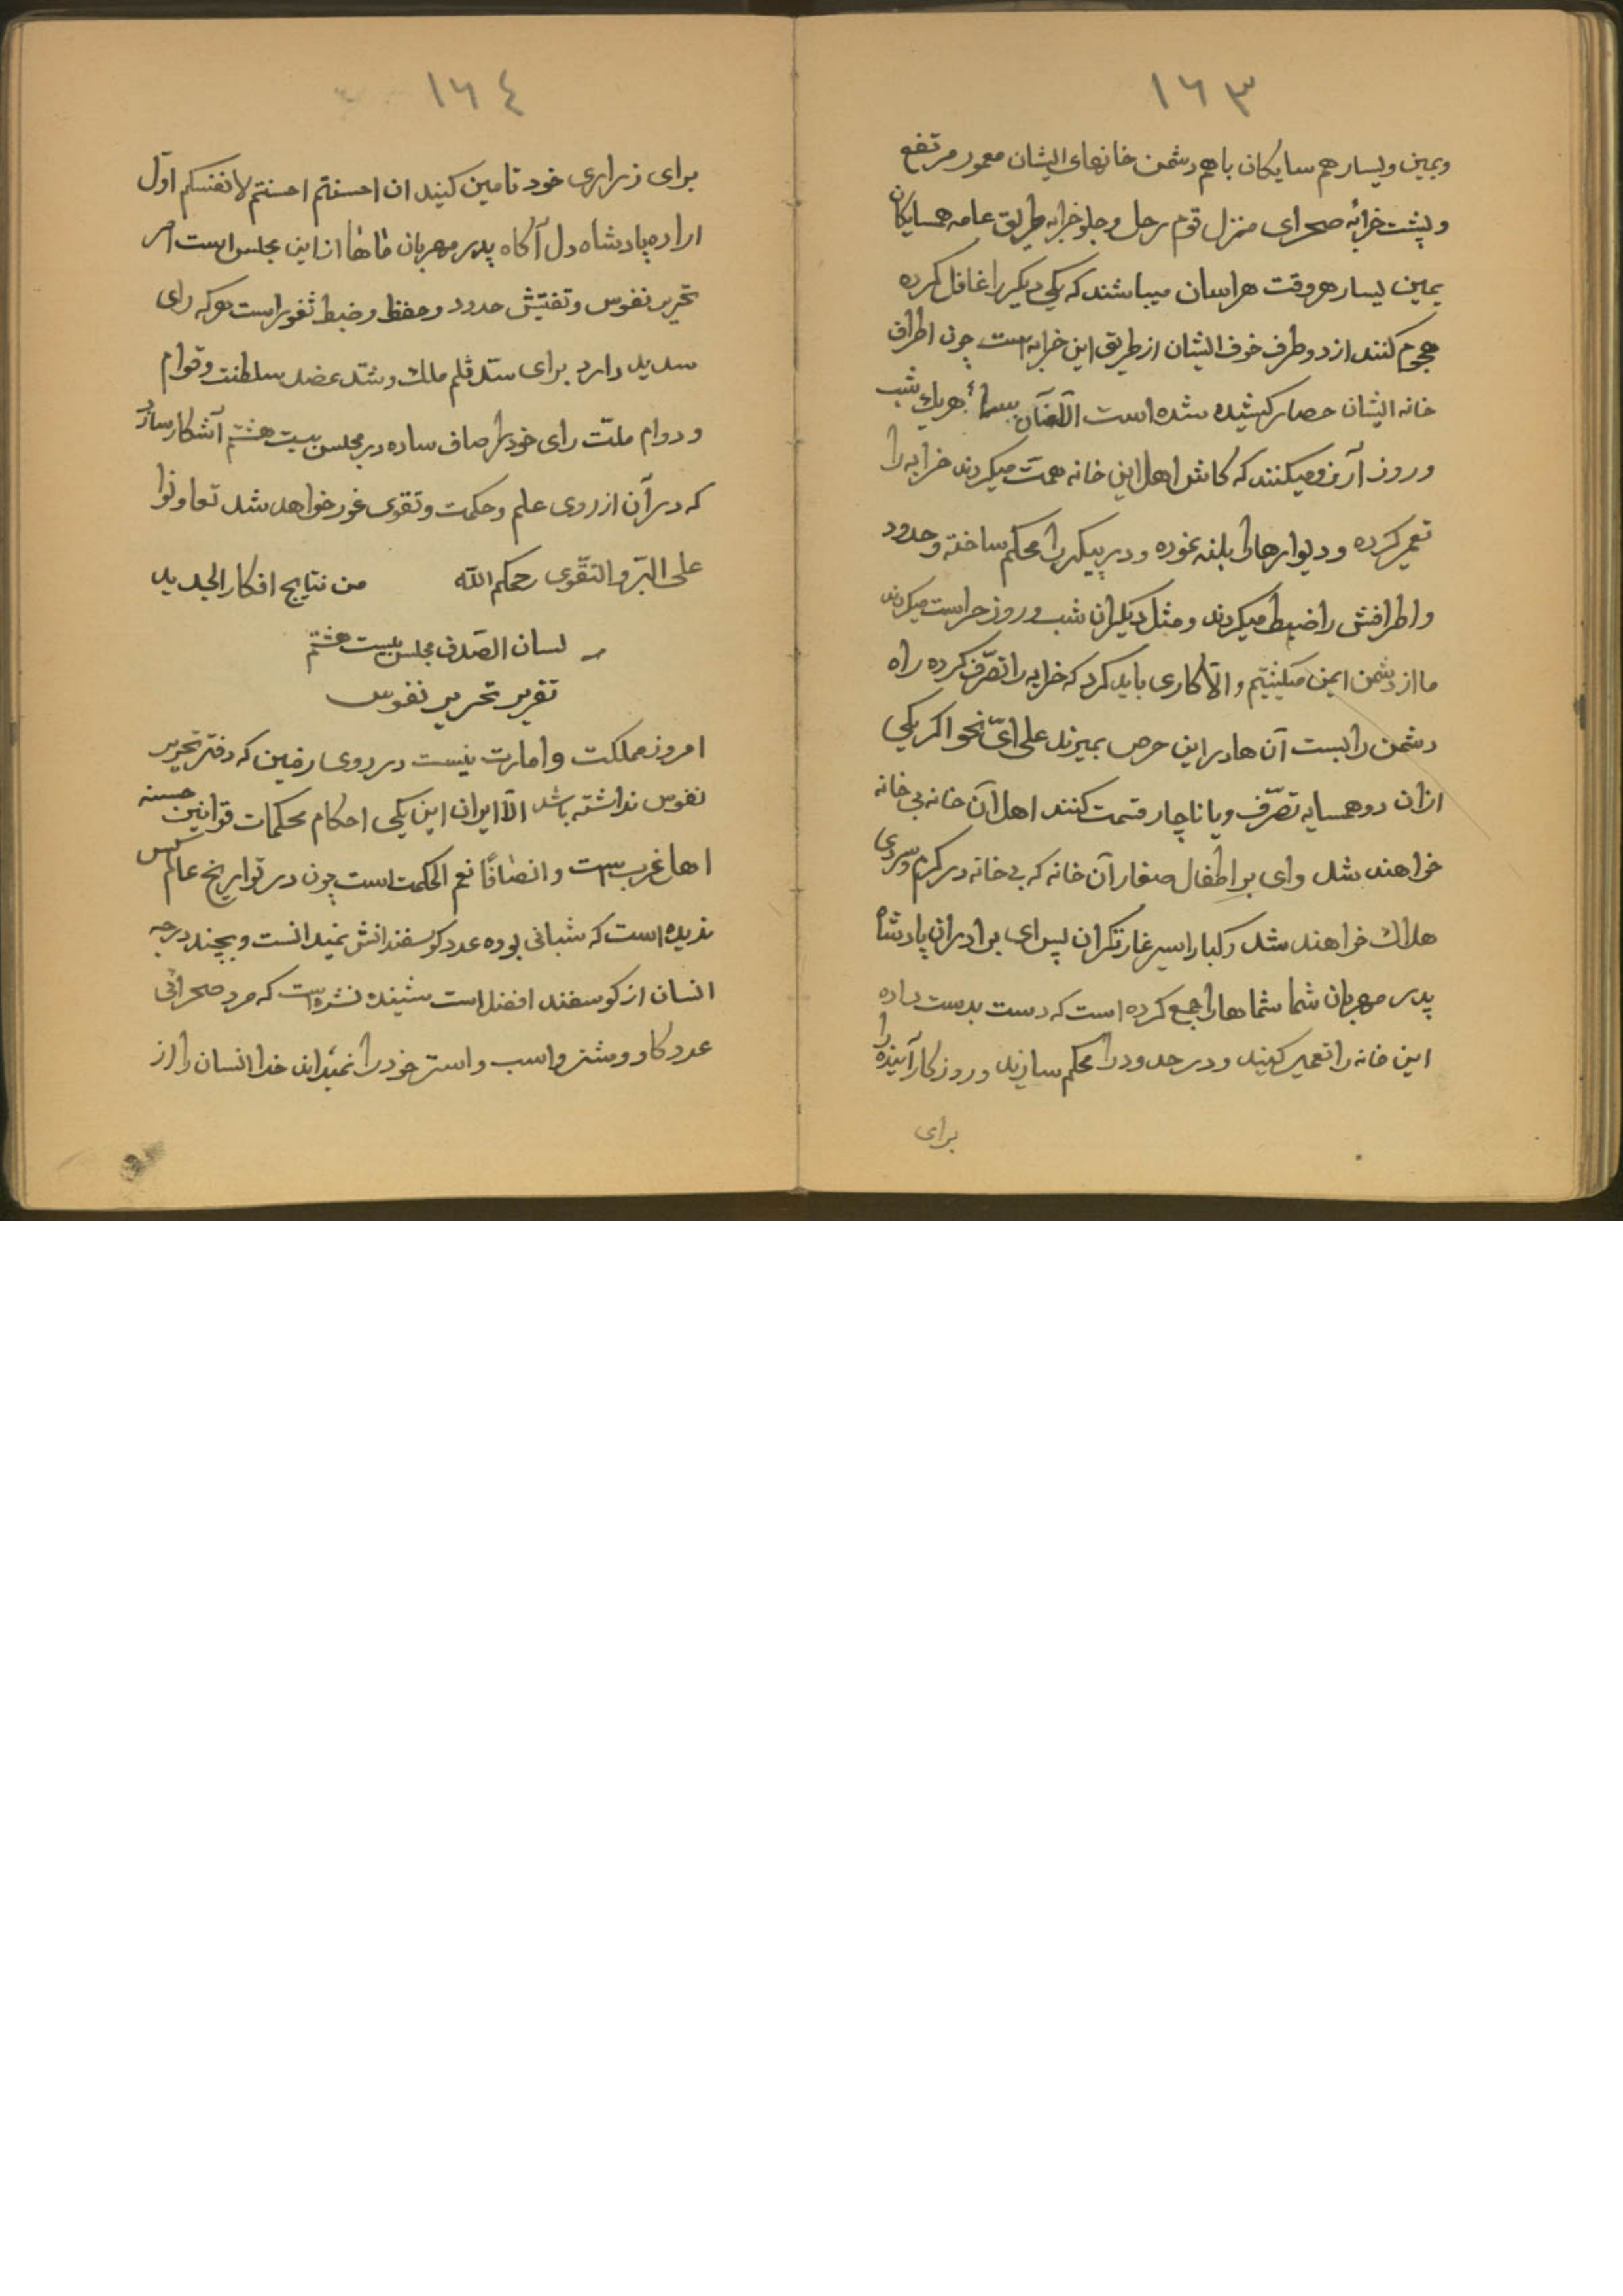 ١٦٣
ویمین ویسار هم سایکان باهم دشمن خانهای ایشان معمور مرتفع
و پشت خرابهٔ صحرای منزل قوم رحل وجلو خرابه طریق عامه همسایکان
یمین یسار هر وقت هراسان میباشند که یکی دیکیر را غافل کرده
هجوم کنند از دو طرف خوف ایشان از طریق این خرابه است چون اطراف
خانه ایشان حصار کشیده شده است هر یك شب
و روز آرزو میکنند که کاش اهل این خانه همت میکردند خرابه را
تعمیر کرده و دیوارها را بلند نموده و در پیکر را محکم ساخته وحدود
و اطرافش را ضبط میکردند و مثل دیکران شب و روز حراست میکردند
ما از دشمن ایمن والّا کاری باید کرد که خرابه را تصرّف کرده راه
دشمن را بست آن ها در این حرص بمیرند علی ایّ نحو اکر یکی
ازان دو همسایه تصرّف ویا ناچار قسمت کنند اهل آن خانه بی خانه
خواهند شد وای بر اطفال صغار آن خانه که بی خانه در کرم وسردی
هلاك خواهند شد و کبار اسیر غارتکران پس ای برادران پادشاه
پدر مهربان شما شماها را جمع کرده است که دست بدست داده
این خانه را تعمیر کنید و در حدود را محکم سازید و روزکار آینده را
برای
١٦٤
برای ذراری خود تامین کنید ان احسنتم احسنتم لانفسکم اوّل
اراده پادشاه دل آکاه پدر مهربان ماها از این مجلس است امر
تحریر نفوس و تفتیش حدود و حفظ و ضبط ثغور است هرکه رای
سدید دارد برای سدّ ثلم ملك و شدّ عضد سلطنت و قوام
و دوام ملّت رای خود را صاف ساده در مجلس بیست هشتم آشکار سازد
که در آن از روی علم و حکمت و تقوی غور خواهد شد تعاونوا
علی البرّ والتقوی رحمکم الله من نتایج افکار الجدید
لسان الصّدق مجلس بیست هشتم
تقریر تحریر نفوس
امروز مملکت و امارت نیست در روی زمین که دفتر تحریر
نفوس نداشته باشد الّا ایران این یکی احکام محکمات قوانین حسنه
اهل غرب است و انصافًا نعم الحکمت است چون در تواریخ عالم کس
ندیده است که شبانی بوده عدد کوسفندانش نمیدانست و بچند درجه
انسان از کوسفند افضل است شنیده نشده است که مرد صحرائی
عدد کاو و شتر و اسب و استر خود را نمیداند خدا انسان را از